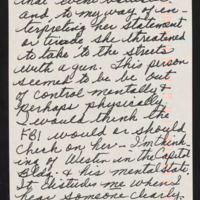 and, to my way of in-
terpreting her statement
or tirade she threatened
to take to the streets
with a gun. This person
seemed to be be out
of control mentally &
perhaps physically.
I would think the
FBI would or should
check on her - I'm think-
ing of Westin in the Capitol
Bldg. & his mental state.
It disturbs me when I
hear someone clearly